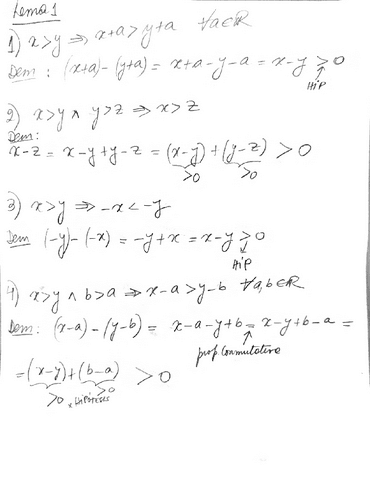 Lema 1
1) x>y ⇒ x+a>y+a ∀a∈ℝ
Dem: (x+a)-(y+a) = x+a-y-a = x-y > 0
HIP
2) x>y ∧ y>z ⇒ x>z
Dem:
x-z = x-y+y-z = (x-y)+(y-z) > 0
>0 >0
3) x>y ⇒ -x<-y
Dem (-y)-(-x) = -y+x = x-y > 0
HIP
4) x>y ∧ b>a ⇒ x-a>y-b ∀a,b∈ℝ
Dem: (x-a)-(y-b) = x-a-y+b = x-y+b-a =
prop conmutativa
=(x-y)+(b-a) > 0
>0 >0
x Hipótesis